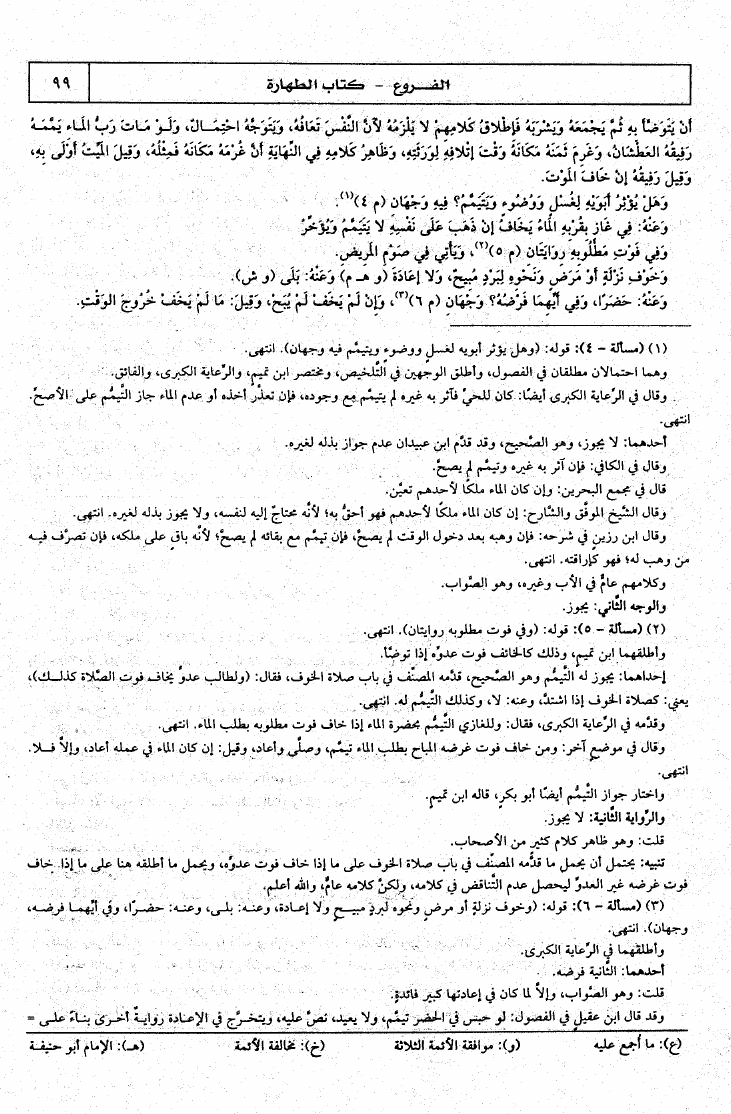 الفـــروع - كتاب الطهارة
٩٩
أَنْ يَتَوَضَّأَ بِهِ ثُمَّ يَجْمَعَهُ وَيَشْرَبَهُ فَإِطْلَاقُ كَلَامِهِمْ لَا يَلْزَمُهُ لأَنَّ النَّفْسَ تَعَافُهُ، وَيَتَوَجَّهُ احْتِمَـالٌ، وَلَـوْ مَـاتَ رَبُّ المَـاءِ يَمَّمَـهُ
رَفِيقُهُ العَطْشَانُ، وَغَرِمَ ثَمَنَهُ مَكَانَهُ وَقْتَ إتْلافِهِ لِوَرَثَتِهِ، وَظَاهِرُ كَلامِهِ فِي النِّهَايَةِ أَنَّ غُرْمَهُ مَكَانَهُ فَمِثْلُهُ، وَقِيلَ المَيِّتُ أَوْلَى بِهِ،
وَقِيلَ رَفِيقُهُ إنْ خَافَ المَوْتَ.
وَهَلْ يُؤْثِرُ أَبَوَيْهِ لِغُسْلٍ وَوُضُوءٍ وَيَتَيَمَّمُ؟ فِيهِ وَجْهَانِ (م ٤)(١).
وَعَنْهُ: فِي غَازٍ بِقُرْبِهِ المَاءُ يَخَافُ إنْ ذَهَبَ عَلَى نَفْسِهِ لَا يَتَيَمَّمُ وَيُؤَخِّرُ
وَفِي فَوْتِ مَطْلُوبِهِ رِوَايَتَانِ (م ٥)(٢)، وَيَأْتِي فِي صَوْمِ المَرِيضِ.
وَخَوْفُ نَزْلَةٍ أَوْ مَرَضٍ وَنَحْوِهِ لِبَرْدٍ مُبِيحٌ، وَلَا إعَادَةَ (و هـ م) وَعَنْهُ: بَلَى (و ش).
وَعَنْهُ: حَضَرًا، وَفِي أَيِّهِمَا فَرْضُهُ؟ وَجْهَانِ (م ٦)(٣)، وَإِنْ لَمْ يَخَفْ لَمْ يُبَحْ، وَقِيلَ: مَا لَمْ يَخَفْ خُرُوجَ الوَقْتِ.
(١) (مسألة - ٤): قوله: (وهل يؤثر أبويه لغسلٍ ووضوءٍ ويتيمَّم فيه وجهان). انتهى.
وهما احتمالان مطلقان في الفصول، وأطلق الوجهين في التَّلخيص، ومختصر ابن تميمٍ، والرِّعاية الكبرى، والفائق.
وقال في الرِّعاية الكبرى أيضًا: كان للحيِّ فآثر به غيره لم يتيمَّم مع وجوده، فإن تعذَّر أخذه أو عدم الماء جاز التَّيمُّم على الأصحِّ.
انتهى.
أحدهما: لا يجوز، وهو الصَّحيح، وقد قدَّم ابن عبيدان عدم جواز بذله لغيره.
وقال في الكافي: فإن آثر به غيره وتيمَّم لم يصحَّ.
قال في مجمع البحرين: وإن كان الماء ملكًا لأحدهم تعيَّن.
وقال الشَّيخ الموفَّق والشَّارح: إن كان الماء ملكًا لأحدهم فهو أحقُّ به؛ لأنَّه محتاجٌ إليه لنفسه، ولا يجوز بذله لغيره. انتهى.
وقال ابن رزينٍ في شرحه: فإن وهبه بعد دخول الوقت لم يصحَّ، فإن تيمَّم مع بقائه لم يصحَّ؛ لأنَّه باقٍ على ملكه، فإن تصرَّف فيـه
من وهب له؛ فهو كإراقته. انتهى.
وكلامهم عامٌّ في الأب وغيره، وهو الصَّواب.
والوجه الثَّاني: يجوز.
(٢) (مسألة - ٥): قوله: (وفي فوت مطلوبه روايتان). انتهى.
وأطلقهما ابن تميمٍ، وذلك كالخائف فوت عدوِّه إذا توضَّأ.
إحداهما: يجوز له التَّيمُّم وهو الصَّحيح، قدَّمه المصنِّف في باب صلاة الخوف، فقال: (ولطالب عدوٍّ يخاف فوت الصَّلاة كذلـك)،
يعني: كصلاة الخوف إذا اشتدَّ، وعنه: لا، وكذلك التَّيمُّم له. انتهى.
وقدَّمه في الرِّعاية الكبرى، فقال: وللغازي التَّيمُّم بحضرة الماء إذا خاف فوت مطلوبه بطلب الماء. انتهى.
وقال في موضعٍ آخر: ومن خاف فوت غرضه المباح بطلب الماء تيمَّم، وصلَّى وأعاد، وقيل: إن كان الماء في عمله أعاد، وإلاَّ فـلا.
انتهى.
واختار جواز التَّيمُّم أيضًا أبو بكرٍ، قاله ابن تميمٍ.
والرِّواية الثَّانية: لا يجوز.
قلت: وهو ظاهر كلام كثيرٍ من الأصحاب.
تنبيه: يحتمل أن يحمل ما قدَّمه المصنِّف في باب صلاة الخوف على ما إذا خاف فوت عدوِّه، ويحمل ما أطلقه هنا على ما إذا خاف
فوت غرضه غير العدوِّ ليحصل عدم التَّناقض في كلامه، ولكنَّ كلامه عامٌّ، والله أعلم.
(٣) (مسألة - ٦): قوله: (وخوف نزلةٍ أو مرضٍ ونحوه لبردٍ مبيـحٍ ولا إعادة، وعنـه: بلـى، وعنـه: حضـرًا، وفي أيِّهمـا فرضـه،
وجهان). انتهى.
وأطلقهما في الرِّعاية الكبرى.
أحدهما: الثَّانية فرضه.
قلت: وهو الصَّواب، وإلاَّ لما كان في إعادتها كبير فائدةٍ.
وقد قال ابن عقيلٍ في الفصول: لو حبس في الحضر تيمَّم، ولا يعيد، نصَّ عليه، ويتخرَّج في الإعادة روايـةٌ أخـرى بنـاءً علـى =
(ع): ما أُجمع عليه (و): موافقة الأئمة الثلاثة (خ): مخالفة الأئمة (هـ): الإمام أبو حنيفـة